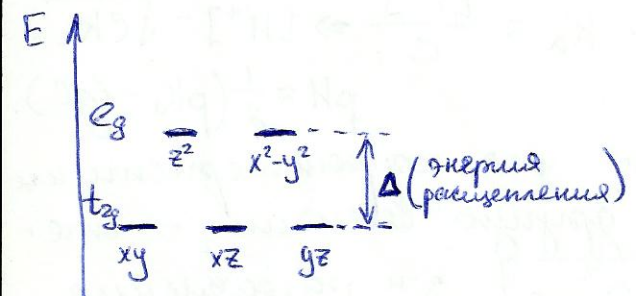 E
e_g
z² x²-y²
Δ (энергия
расщепления)
t₂g
xy xz yz